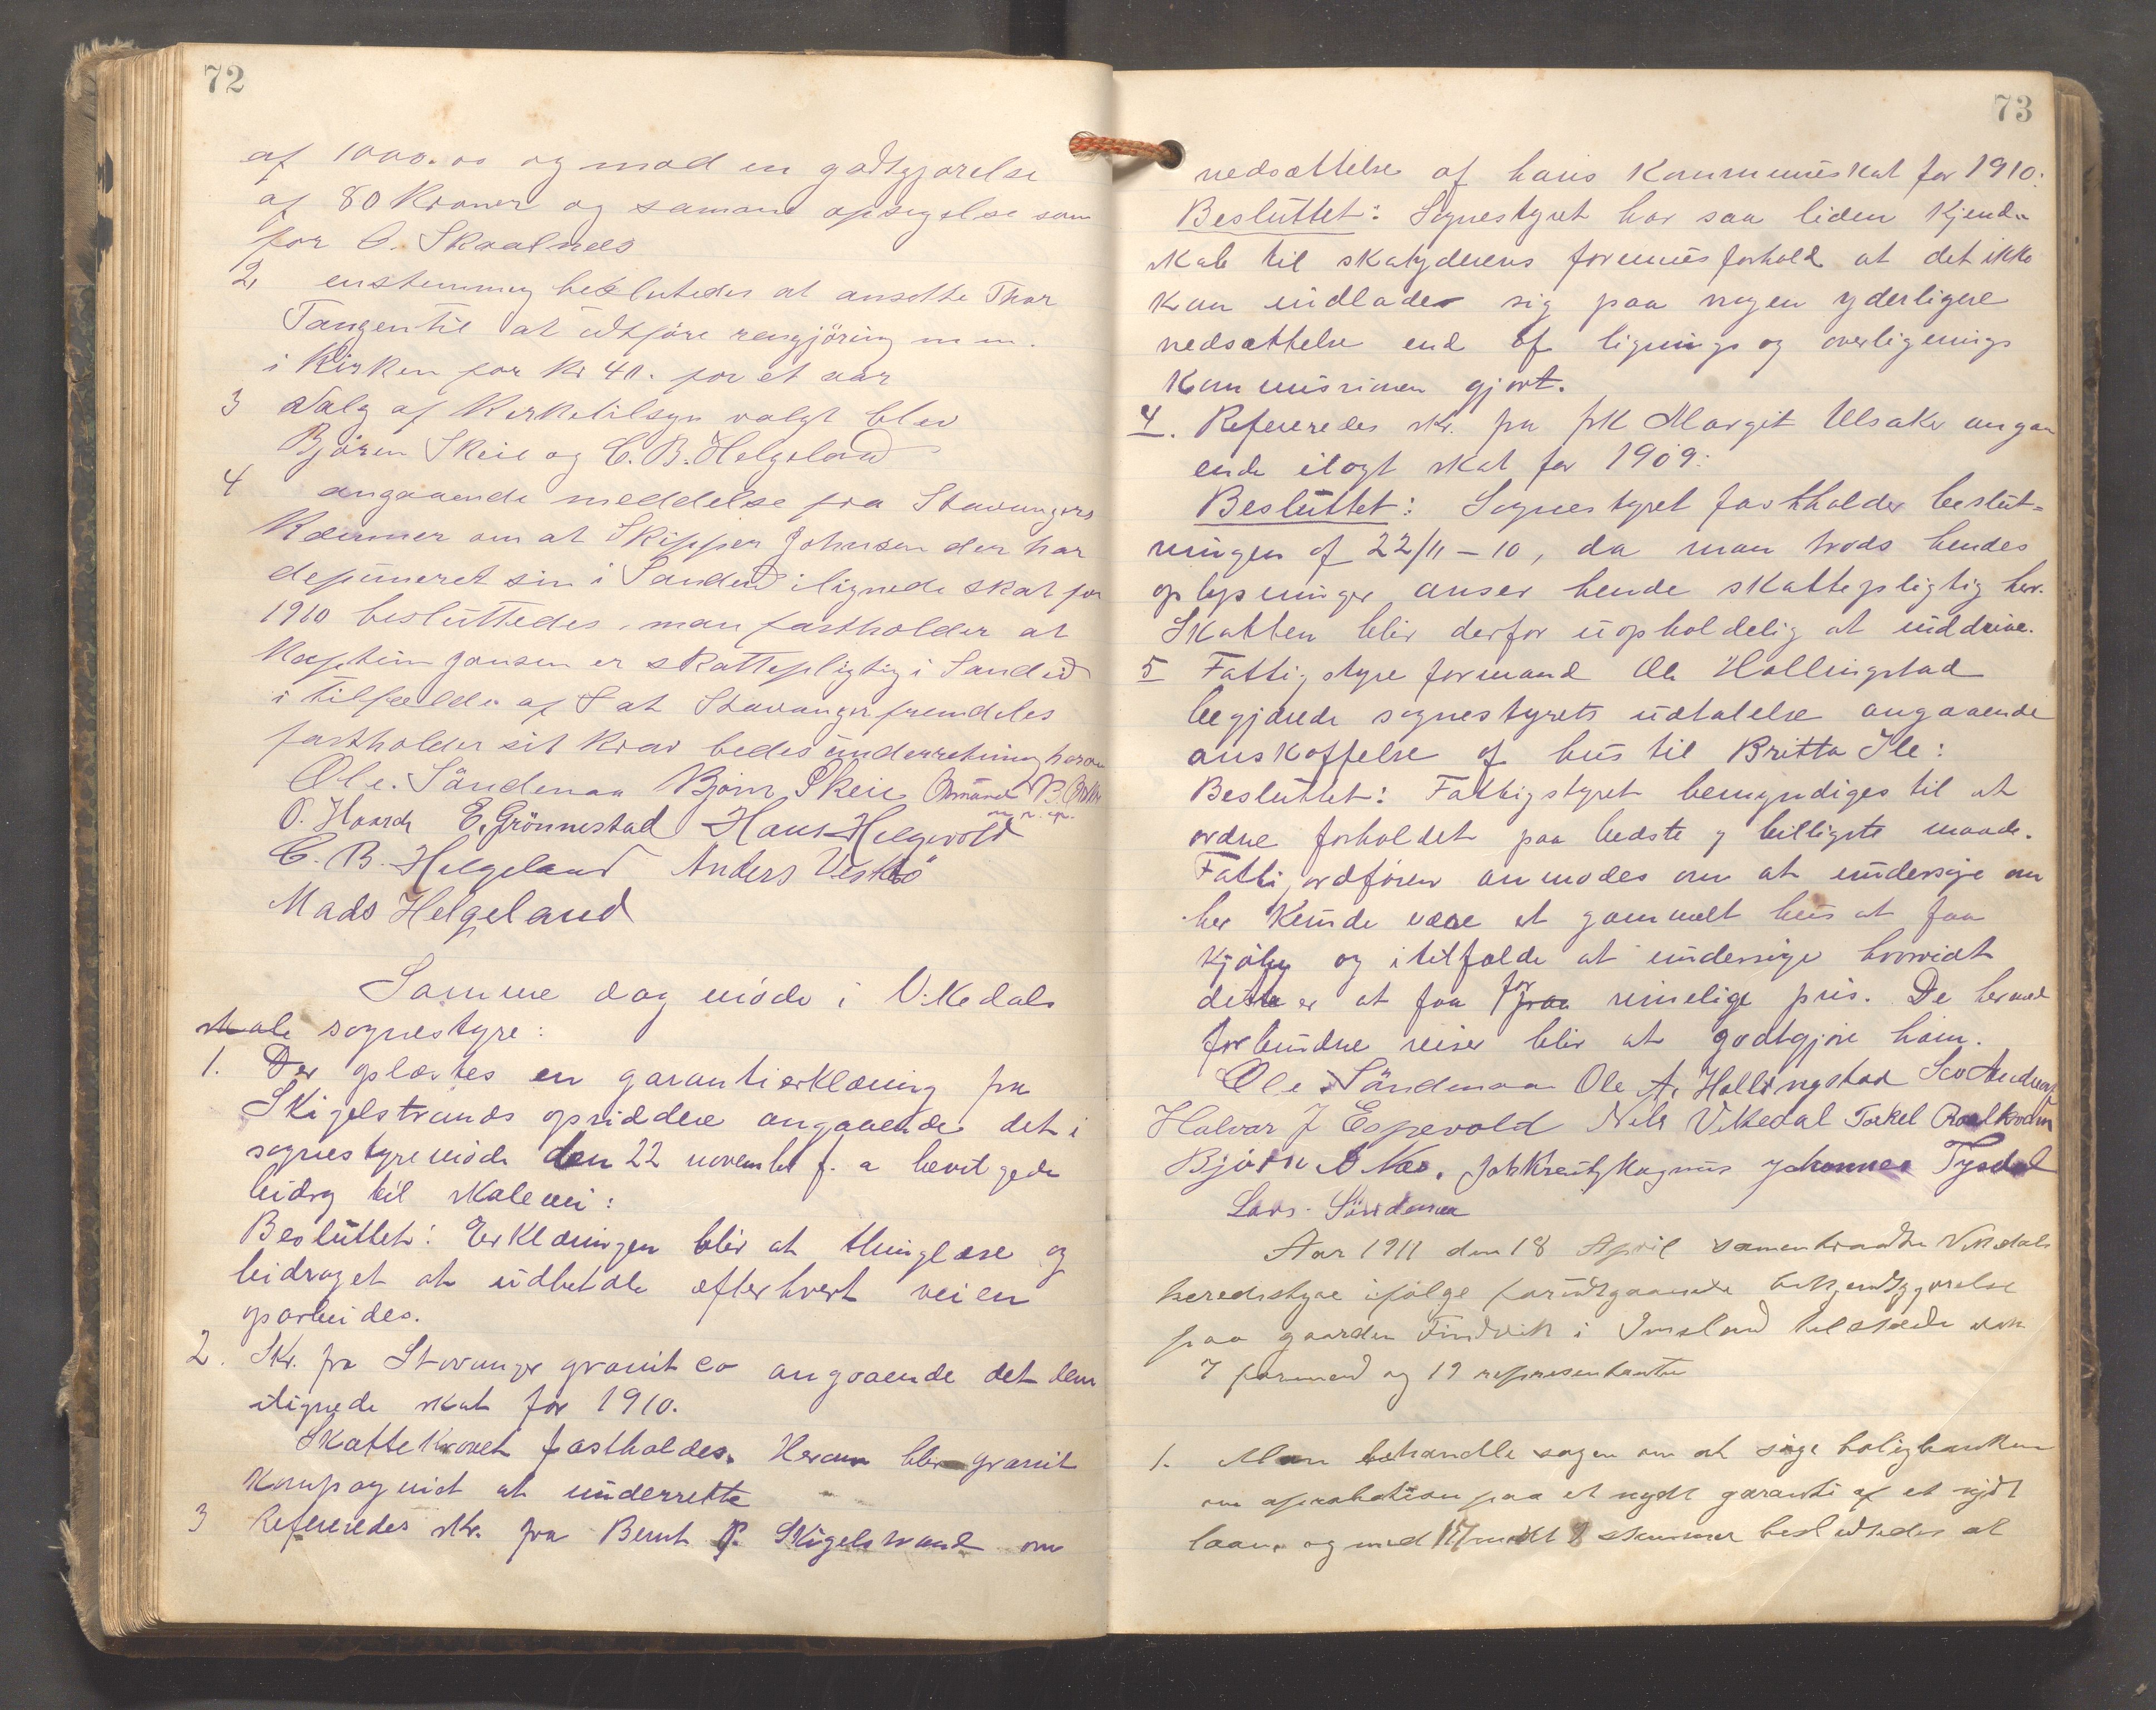 72
af 1000.00 og mod en godtgjørelse
af 80 Kroner og samme opsigelse som
for O. Skaalnes
2, enstemmig besluttedes at ansette Thor
Tangen til at utføre rengjøring m m.
i Kirken for Kr 40. for et aar
3 Valg af Kirketilsyn valgt blev
Bjørn Skeie og C. B. Helgeland
4 angaaende meddelse fra Stavangers
Kæmner om at Skipper Johnsen der har
deponeret sin i Sandeid ilignede skat for
1910 besluttedes, man fastholder at
Kaptein Jonsen er skattepligtig i Sandeid
i tilfælde af at Stavanger fremdeles
fastholder sit Krav bedes underretning herom
Ole. Søndenaa Bjørn Skeie B.
O. Haarde E. Grønnestad Hans Helgevold
m. p. p.
C. B. Helgeland Anders Vestbø
Mads Helgeland
Samme dag møde i Vikedals
skole sognestyre:
1. Der oplæstes en garantierklæring fra
Skigelstrands opsiddere angaaende det i
sognestyremøde den 22 november f. a bevilgede
bidrag til skolevei:
Besluttet: Erklæringen blir at thinglæse og
bidraget at udbetale efterhvert veien
oparbeides.
2. Skr. fra Stavanger granit co angaaende det dem
ilignede skat for 1910.
Skattekravet fastholdes. Herom blir granit
kompagniet at underrette
3 Refereredes skr. fra Bernt P. Skigelstrand om
73
nedsættelse af hans Kommuneskat for 1910:
Besluttet: Sognestyret har saa liden Kjend-
skab til skatyderens formuesforhold at det ikke
kan indlade sig paa nogen yderligere
nedsættelse end af lignings og overlignings
Kommissionen gjort.
4. Refereredes skr. fra frk Margit Ulsaker angaa
ende ilagt skat for 1909:
Besluttet: Sognestyret fastholder beslut-
ningen af 22/11-10, da man trods hendes
oplysninger anser hende skattepligtig her.
Skatten blir derfor uopholdelig at inddrive.
5 Fattigstyreformand Ole Hallingstad
begjærede sognestyrets udtalelse angaaende
anskaffelse af hus til Britta Ile:
Besluttet: Fattigstyret bemyndiges til at
ordne forholdet paa bedste og billigste maade.
Fattigordfører anmodes om at undersøge om
her kunde være et gammelt hus at faa
kjøbe og i tilfælde at undersøge hvorvidt
dette er at faa for rimelige pris. De hermed
forbundne reiser blir at godtgjøre ham.
Ole Søndenaa Ole A. Hallingstad
Halvor J Espevold Nils Vikedal Torkel
Bjørn O Næs. Johannes Tysdal
Lars. Søndenaa
Aar 1911 den 18 April samentraadte Vikedals
heredsstyre ifølge forutgaaende bekjendtgjørelse
paa gaarden Findvik i Imsland tilstæde var
7 formend og 19 representanter
1. Man behandlde sagen om at søge boligbanken
om aprobation paa et nydt garanti af et nydt
laan, og med 17 mot 8 stemmer besluttedes at